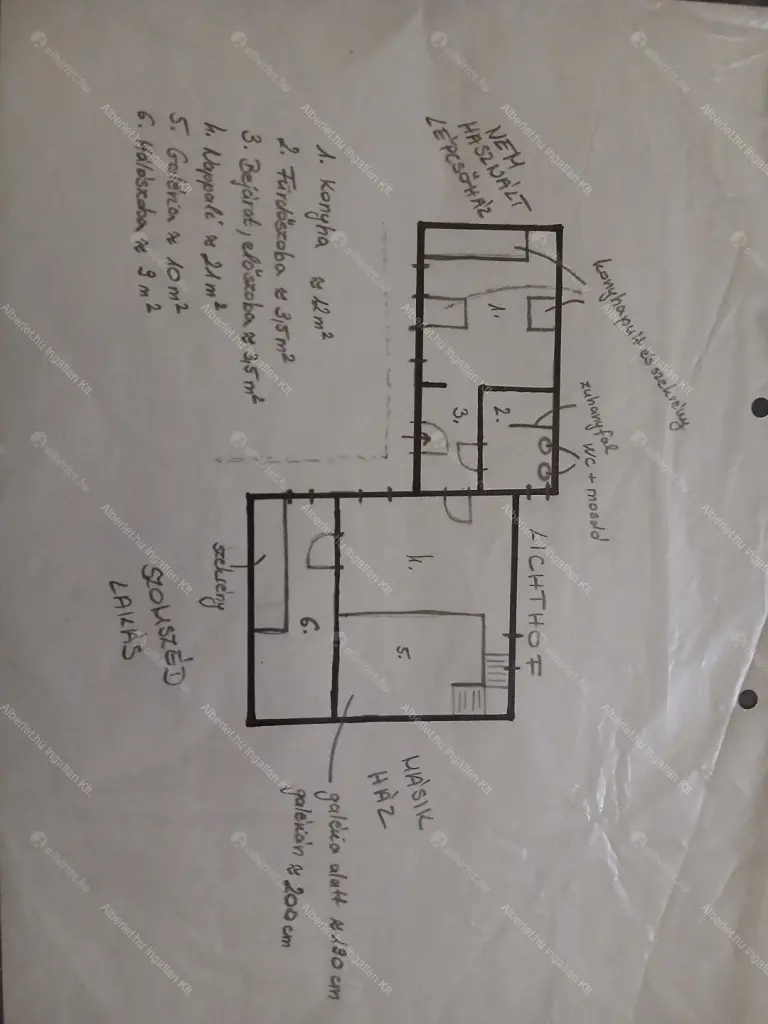 1. Konyha ≈ 12 m²
2. Fürdőszoba ≈ 3,5 m²
3. Bejárat, előszoba ≈ 3,5 m²
4. Nappali ≈ 21 m²
5. Galéria ≈ 10 m²
6. Hálószoba ≈ 9 m²
NEM
HASZNÁLT
LÉPCSŐHÁZ
konyhapult és szekrény
zuhanyfal
wc + mosdó
LICHTHOF
1.
2.
3.
4.
5.
6.
szekrény
SZOMSZÉD
LAKÁS
MÁSIK
HÁZ
galéria alatt ≈ 190 cm
galérián ≈ 200 cm
alberlet.hu
Alberlet.hu Ingatlan Kft.